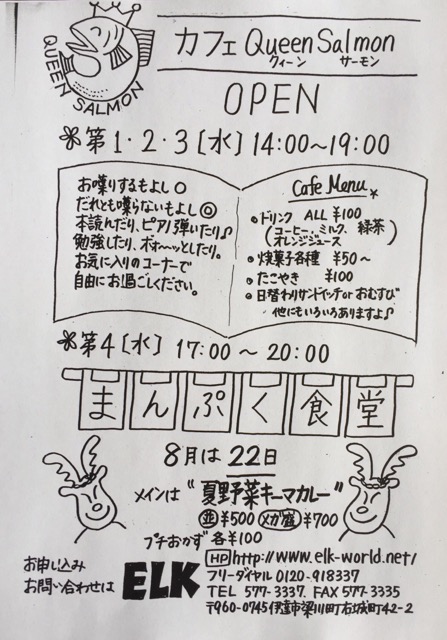 QUEEN SALMON
カフェ Queen Salmon
クィーン サーモン
OPEN
✽第1・2・3[水] 14:00～19:00
お喋りするもよし○
だれとも喋らないもよし◎
本読んだり、ピアノ弾いたり♪
勉強したり、ボォ〜ッとしたり。
お気に入りのコーナーで
自由にお過ごしください。
Cafe Menu
・ドリンク ALL ¥100
(コーヒー、ミルク、緑茶
オレンジジュース)
・焼菓子各種 ¥50～
・たこやき ¥100
・日替わりサンドイッチorおむすび
他にもいろいろありますよ♪
✽第4[水] 17:00～20:00
まんぷく食堂
8月は22日
メインは"夏野菜キーマカレー"
並¥500 メガ盛¥700
プチおかず 各¥100
お申し込み
お問い合わせは
ELK
HP http://www.elk-world.net/
フリーダイヤル 0120-918337
TEL 577-3337. FAX 577-3335
〒960-0745 伊達市梁川町右城町42-2